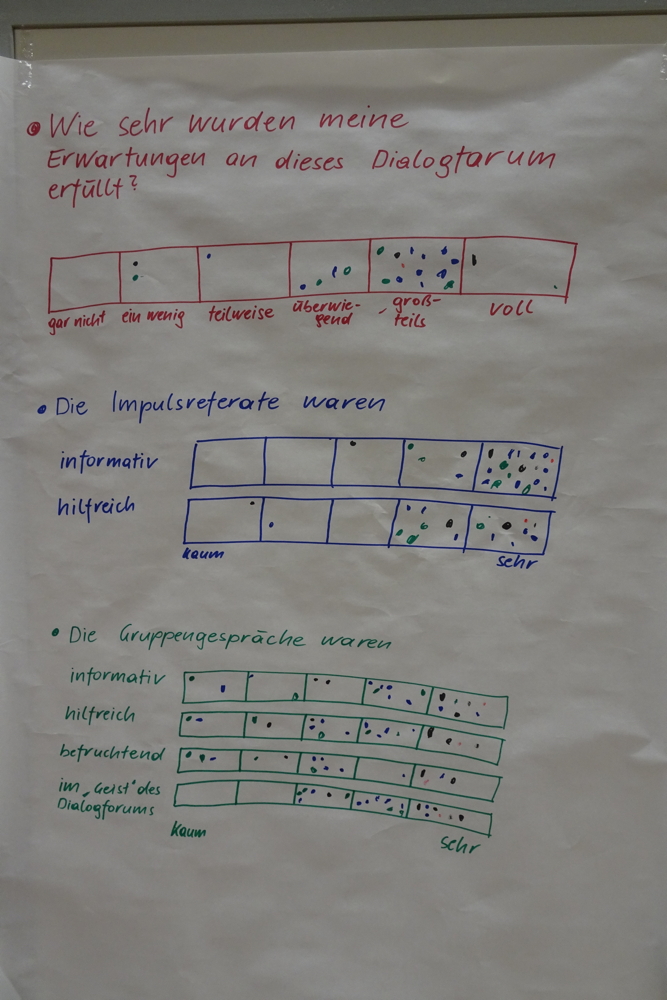 • Wie sehr wurden meine
Erwartungen an dieses Dialogforum
erfüllt?
gar nicht ein wenig teilweise überwie-
gend groß-
teils voll
• Die Impulsreferate waren
informativ
hilfreich
kaum sehr
• Die Gruppengespräche waren
informativ
hilfreich
befruchtend
im „Geist" des
Dialogforums
kaum sehr